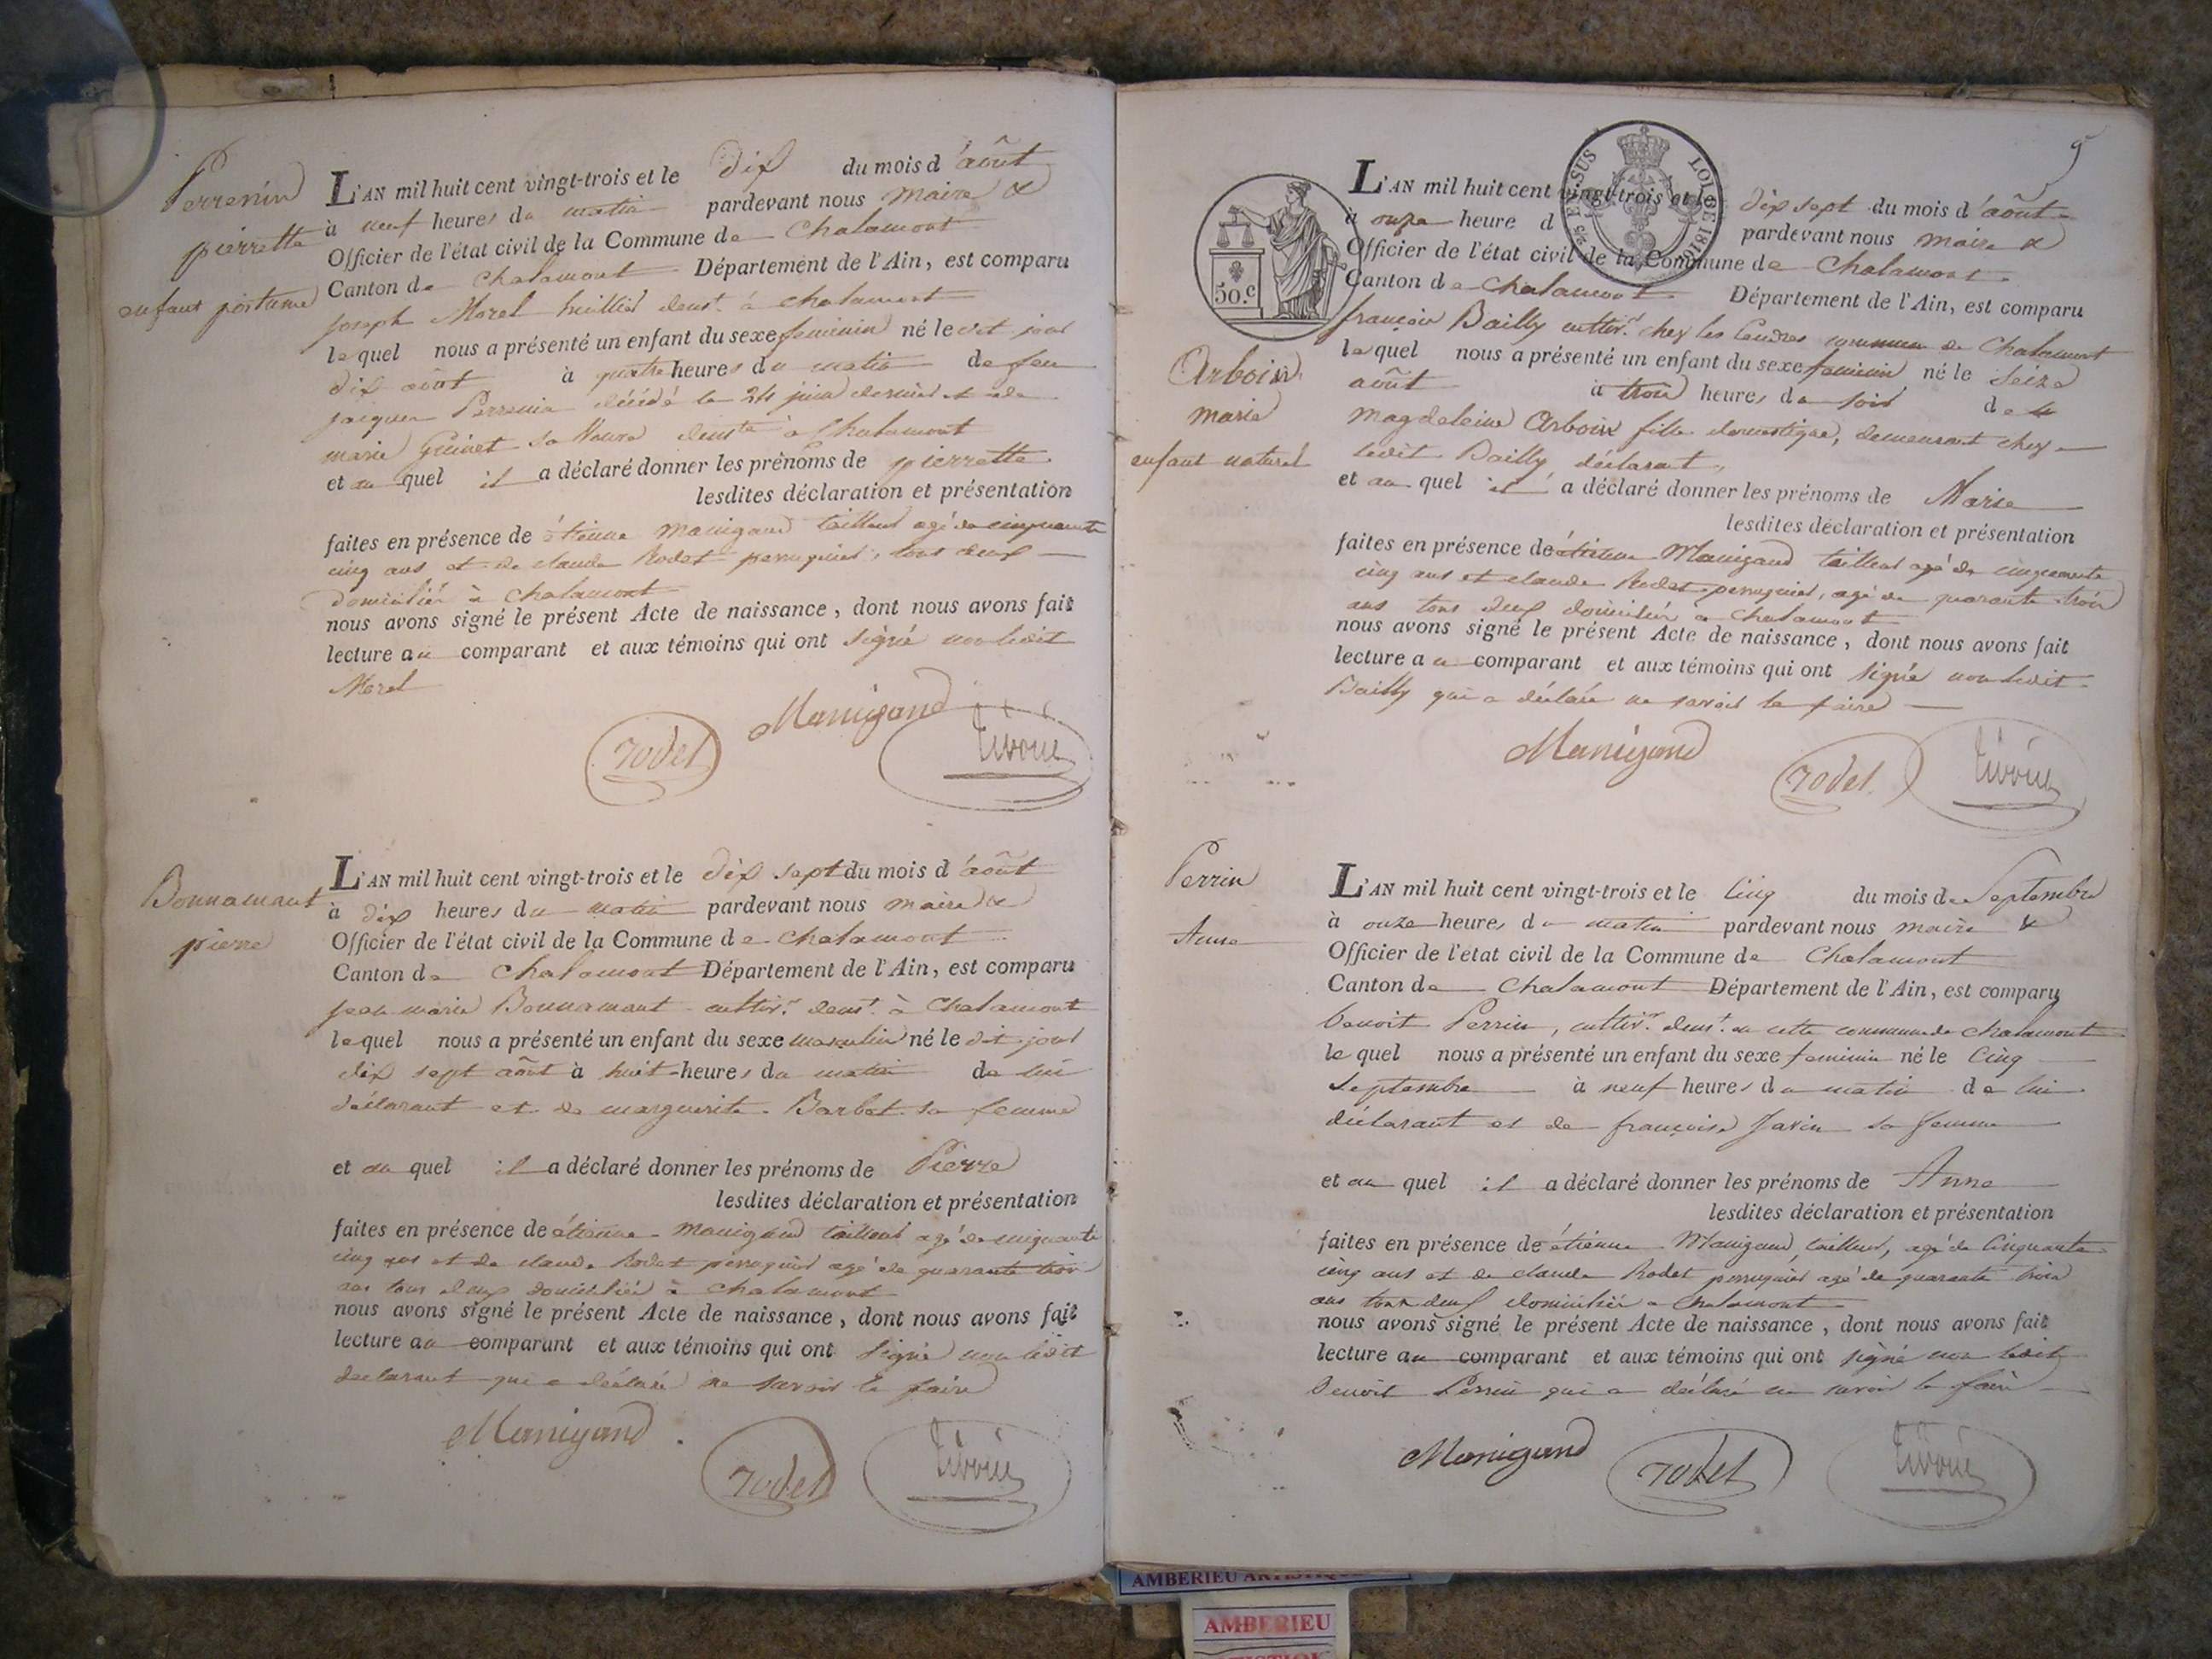 Perrenin
pierrette
enfant postume
L'AN mil huit cent vingt-trois et le dix du mois d'août
à neuf heures du matin pardevant nous maire &
Officier de l'état civil de la Commune de Chalamont
Canton de Chalamont Département de l'Ain, est comparu
joseph Morel huillier demt. à chalamont
le quel nous a présenté un enfant du sexe feminin né le dit jour
dix août à quatre heures du matin de feu
jacques Perrenin décédé le 24 juin dernier et de
marie Guinet sa Veuve demte à Chalamont
et au quel il a déclaré donner les prénoms de pierrette
lesdites déclaration et présentation
faites en présence de étienne Manigand tailleur agé de cinquante
cinq ans et de claude Rodet perruquier, tous deux
domiciliés à Chalamont
nous avons signé le présent Acte de naissance, dont nous avons fait
lecture au comparant et aux témoins qui ont signé non ledit
Morel
Manigand
rodet
Bonnamant
pierre
L'AN mil huit cent vingt-trois et le dix sept du mois d'août
à dix heures du matin pardevant nous maire &
Officier de l'état civil de la Commune de Chalamont
Canton de Chalamont Département de l'Ain, est comparu
jean marie Bonnamant cultivr. demt. à Chalamont
le quel nous a présenté un enfant du sexe masculin né le dit jour
dix sept août à huit heures du matin de lui
déclarant et de marguerite Barbet sa femme
et au quel il a déclaré donner les prénoms de Pierre
lesdites déclaration et présentation
faites en présence de étienne Manigand tailleur agé de cinquante
cinq ans et de claude Rodet perruquier agé de quarante trois
ans tous deux domiciliés à Chalamont
nous avons signé le présent Acte de naissance, dont nous avons fait
lecture au comparant et aux témoins qui ont signé non ledit
declarant qui a déclaré ne savoir le faire
Manigand
rodet
9
25 E. SUS LOI DE 1816
50.c
Arboin
marie
enfant naturel
L'AN mil huit cent vingt-trois et le dix sept du mois d'août
à onze heure d pardevant nous maire &
Officier de l'état civil de la Commune de Chalamont
Canton de Chalamont Département de l'Ain, est comparu
françois Bailly cultivr. chez les commune de Chalamont
le quel nous a présenté un enfant du sexe feminin né le seize
août à trois heures du soir de
Magdeleine Arboin fille domestique, demeurant chez
ledit Bailly déclarant,
et au quel il a déclaré donner les prénoms de Marie
lesdites déclaration et présentation
faites en présence de étienne Manigand tailleur agé de cinquante
cinq ans et claude Rodet perruquier, agé de quarante trois
ans tous deux domiciliés à Chalamont
nous avons signé le présent Acte de naissance, dont nous avons fait
lecture au comparant et aux témoins qui ont signé non ledit
Bailly qui a déclaré ne savoir le faire
Manigand
rodet
Perrin
Anne
L'AN mil huit cent vingt-trois et le Cinq du mois de Septembre
à onze heures du matin pardevant nous maire &
Officier de l'état civil de la Commune de Chalamont
Canton de Chalamont Département de l'Ain, est comparu
benoit Perrin, cultivr. demt. en cette commune de chalamont
le quel nous a présenté un enfant du sexe feminin né le Cinq
septembre à neuf heures du matin de lui
déclarant et de françoise Javin sa femme
et au quel il a déclaré donner les prénoms de Anne
lesdites déclaration et présentation
faites en présence de étienne Manigand tailleur, agé de Cinquante
cinq ans et de claude Rodet perruquier agé de quarante trois
ans tous deux domiciliés à Chalamont
nous avons signé le présent Acte de naissance, dont nous avons fait
lecture au comparant et aux témoins qui ont signé non ledit
Benoit Perrin qui a déclaré ne savoir le faire
Manigand
rodet
AMBERIEU
AMBERIEU